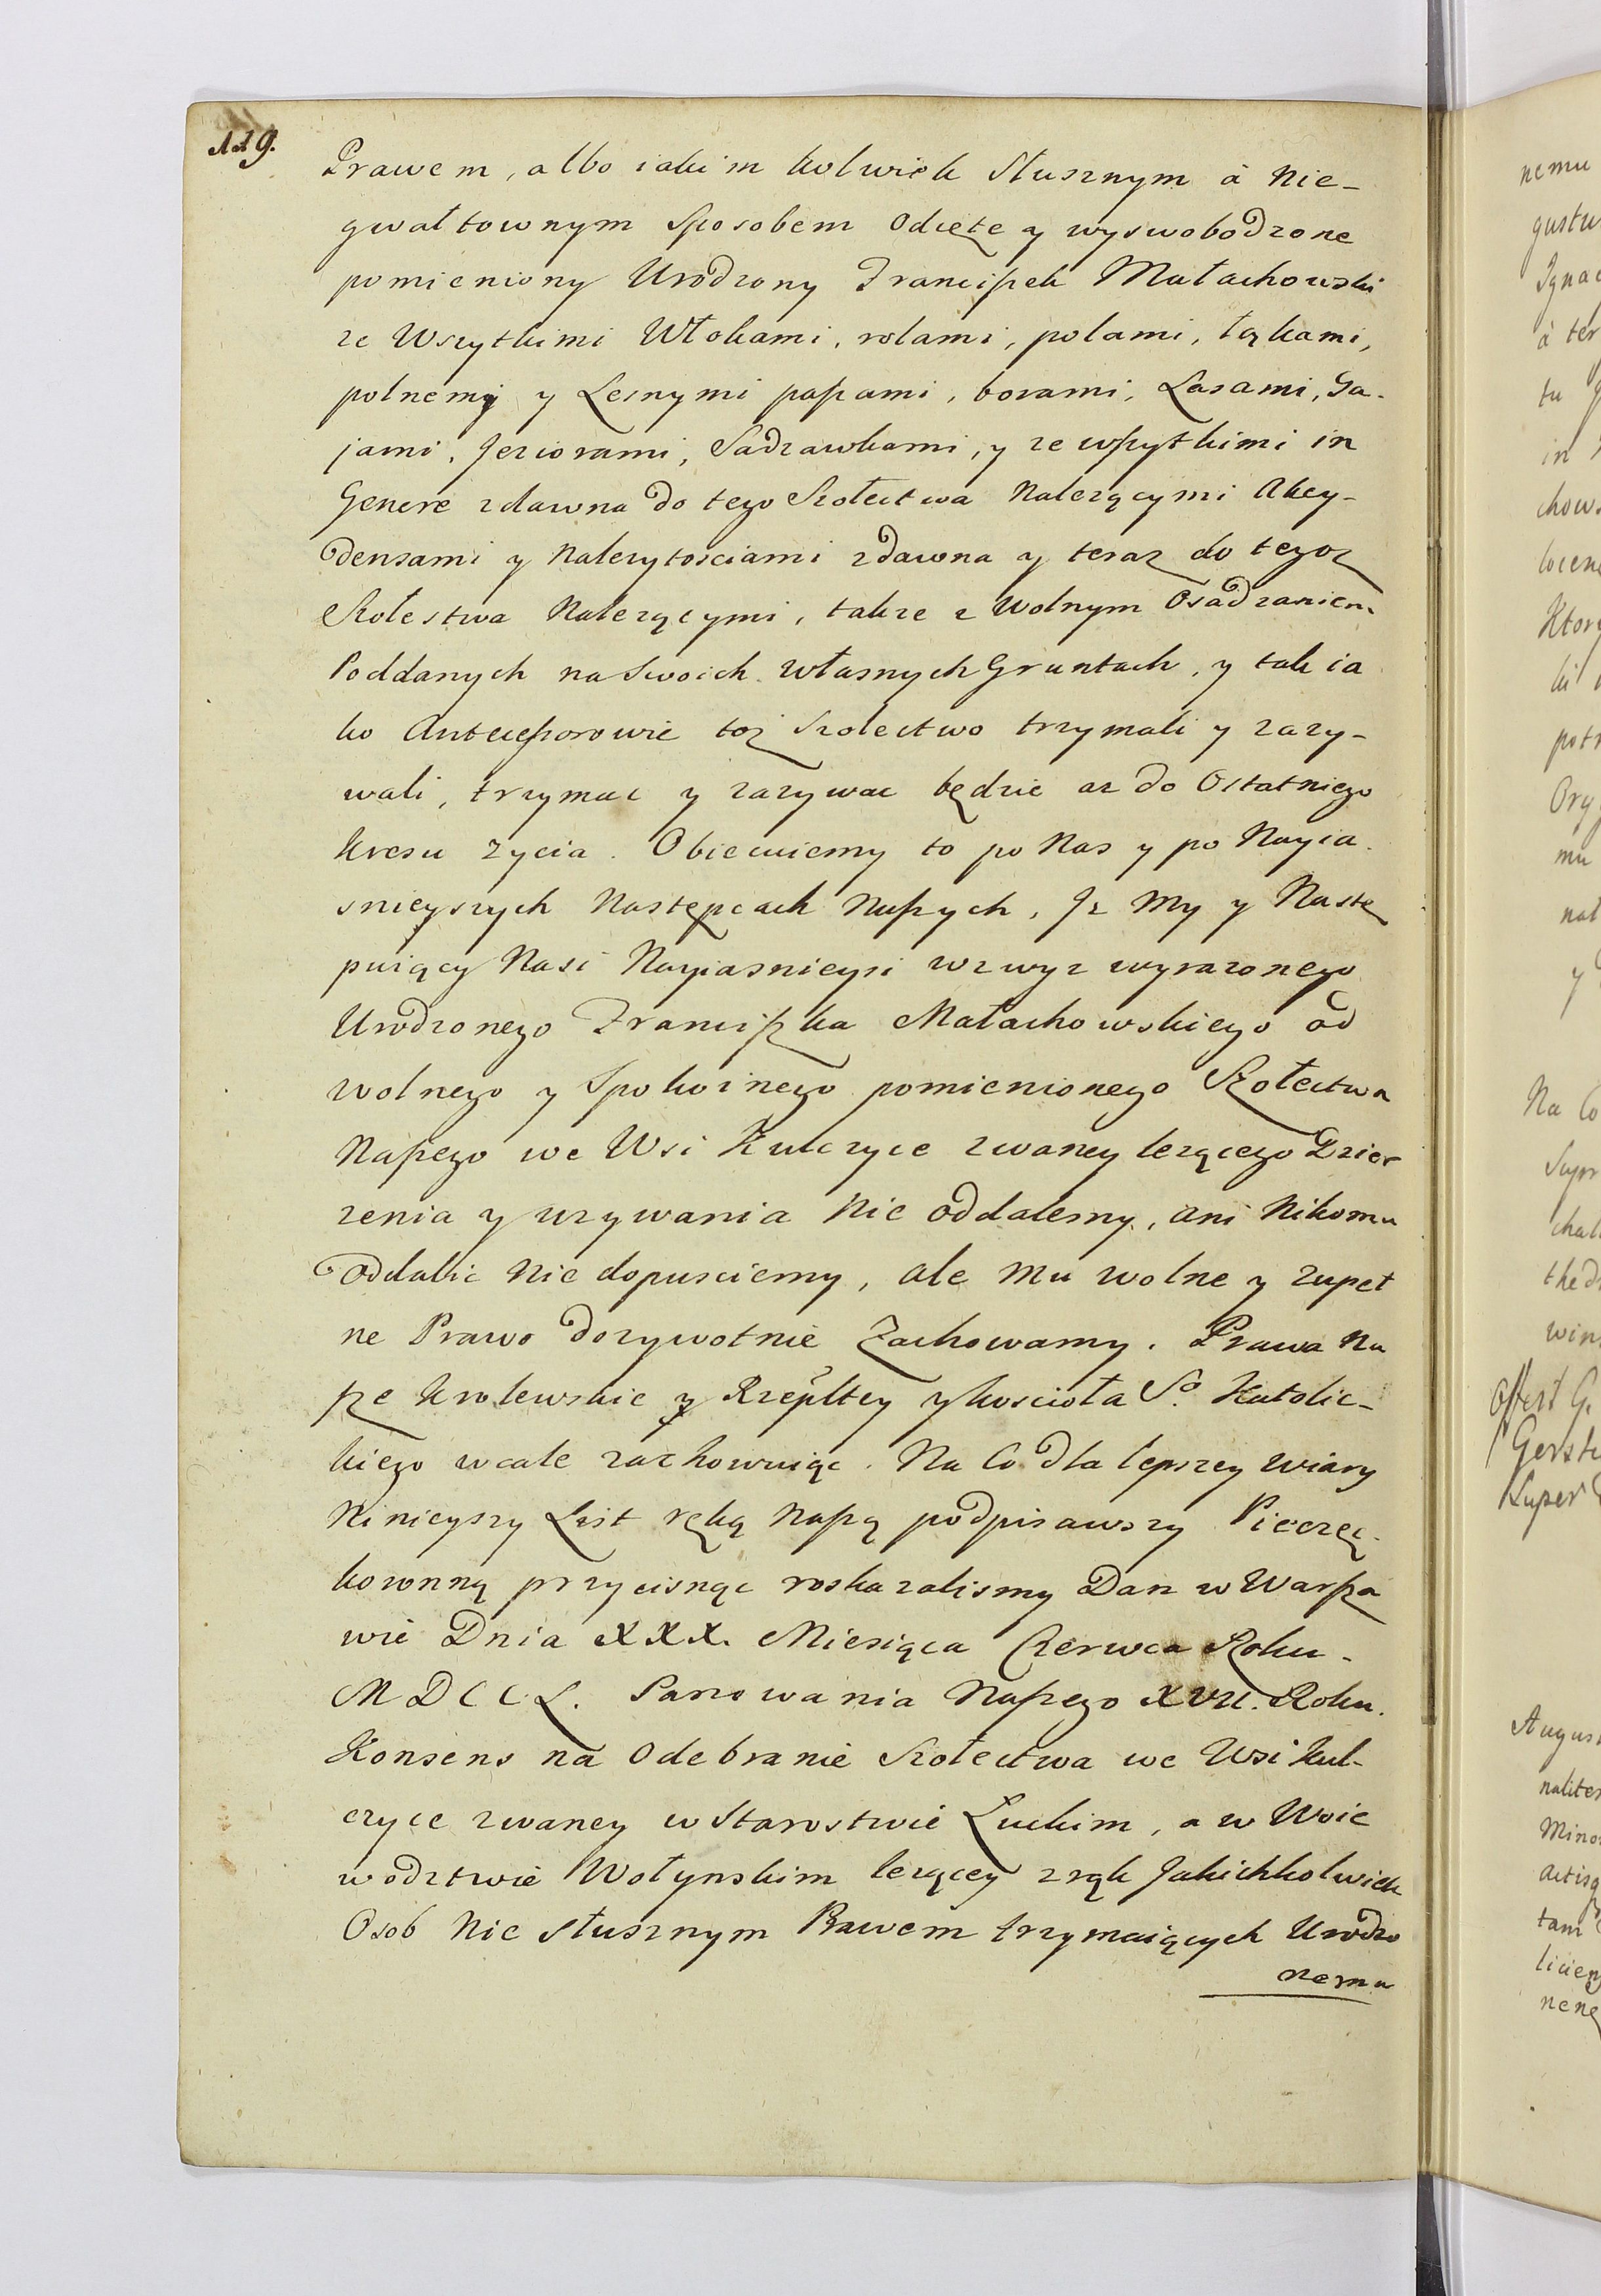 119.
Prawem, albo iakim kolwiek Słusznym à nie-
gwałtownym sposobem Odięte y wyswobodzone
pomieniony Urodzony Franciszek Małachowski
ze Wszytkimi Włokami, rolami, polami, łąkami,
polnemy y Lesnymi paszami, borami, Lasami, Ga-
jami, Jeziorami, Sadzawkami, y ze wszytkimi in
Genere zdawna do tego Szołectwa Należącymi Akcy-
densami y Należytościami zdawna y teraz do tegoz
Szołestwa Należącymi, takze z Wolnym Osadzaniem
Poddanych na Swoich własnych Gruntach, y tak ia
ko Antecessorowie toż Szołectwo trzymali y zazy-
wali, trzymac y zazywac będzie az do Ostatniego
kresu zycia. Obiecuiemy to po Nas y po Nayia-
snieyszych Następcach Naszych, Jz My y Nastę
puiący Nasi Nayiasnieysi wzwyz wyrazonego
Urodzonego Franciszka Małachowskiego od
wolnego y Spokoinego pomienionego Szołectwa
Naszego we Wsi Kulczyce zwaney lezącego Dzier
zenia y uzywania Nie oddalemy, ani Nikomu
Oddalic Nie dopusciemy, ale Mu wolne y zupeł
ne Prawo dozywotnie Zachowamy. Prawa Na
sze krolewskie y Rzepltey y kosciola So. Katolic-
kiego wcale zachowuiąc. Na Co dla lepszey wiary
Ninieyszy List ręką Naszą podpisawszy Pieczęć
koronną przycisnąc roskazalismy Dan w Warsza
wie Dnia XXX. Miesiąca Czerwca Roku
MDCCL. Panowania Naszego XVII. Roku.
Konsens na Odebranie Szołectwa we Wsi Kul-
czyce zwaney w Starostwie Łuckim, a w Woie
wodztwie Wołynskim lezącey z rąk Jakichkolwiek
Osob Nie słusznym Prawem trzymaiących Urodzo
nemu